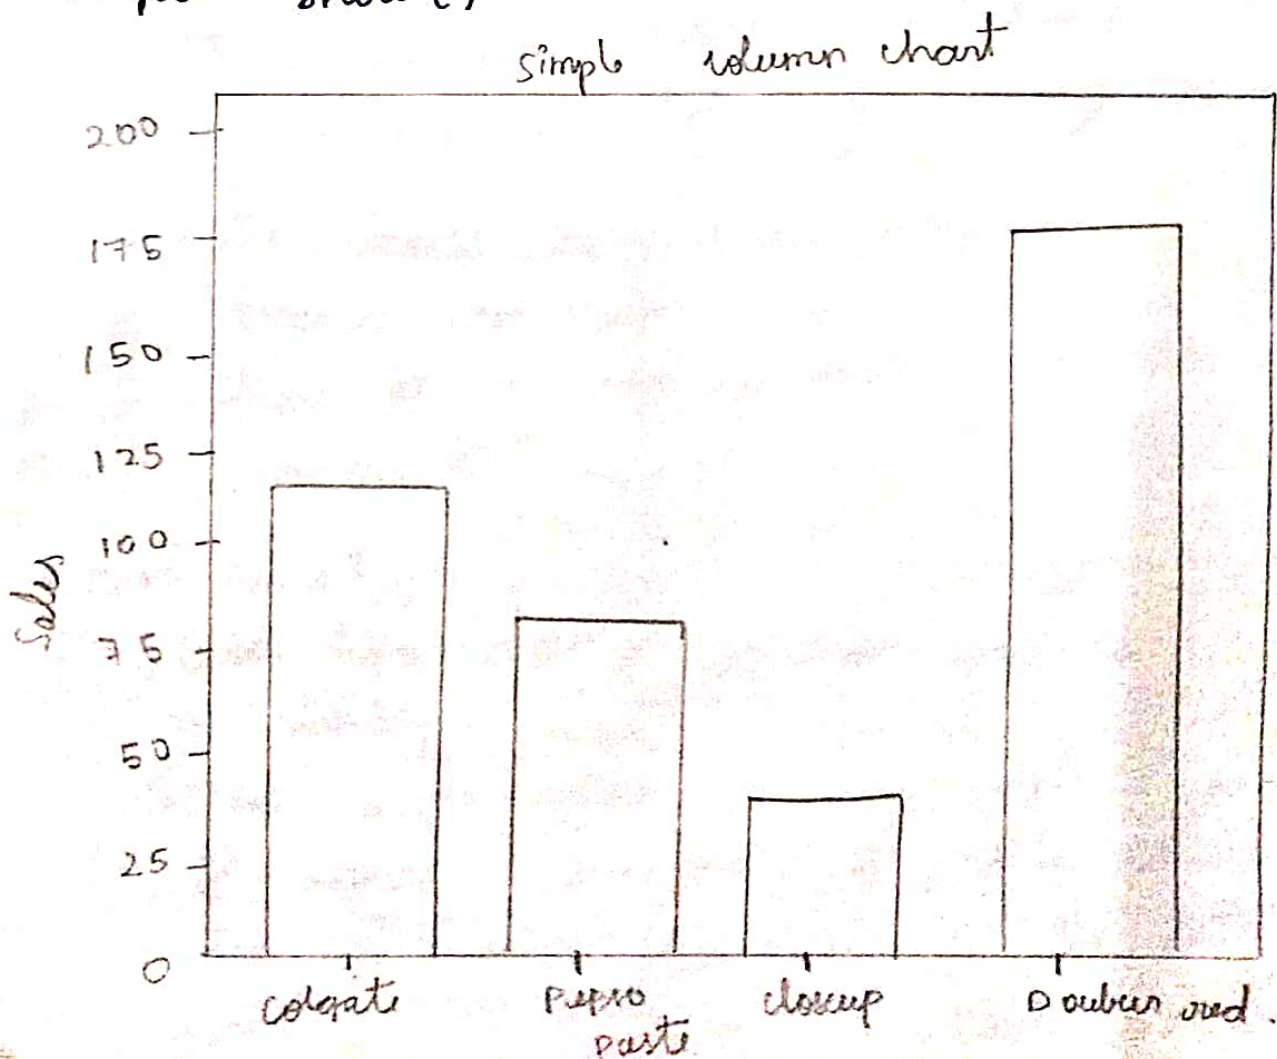 simple column chart
200
175
150
125
100
75
50
25
0
Sales
colgate pepso closeup Daubur red.
paste